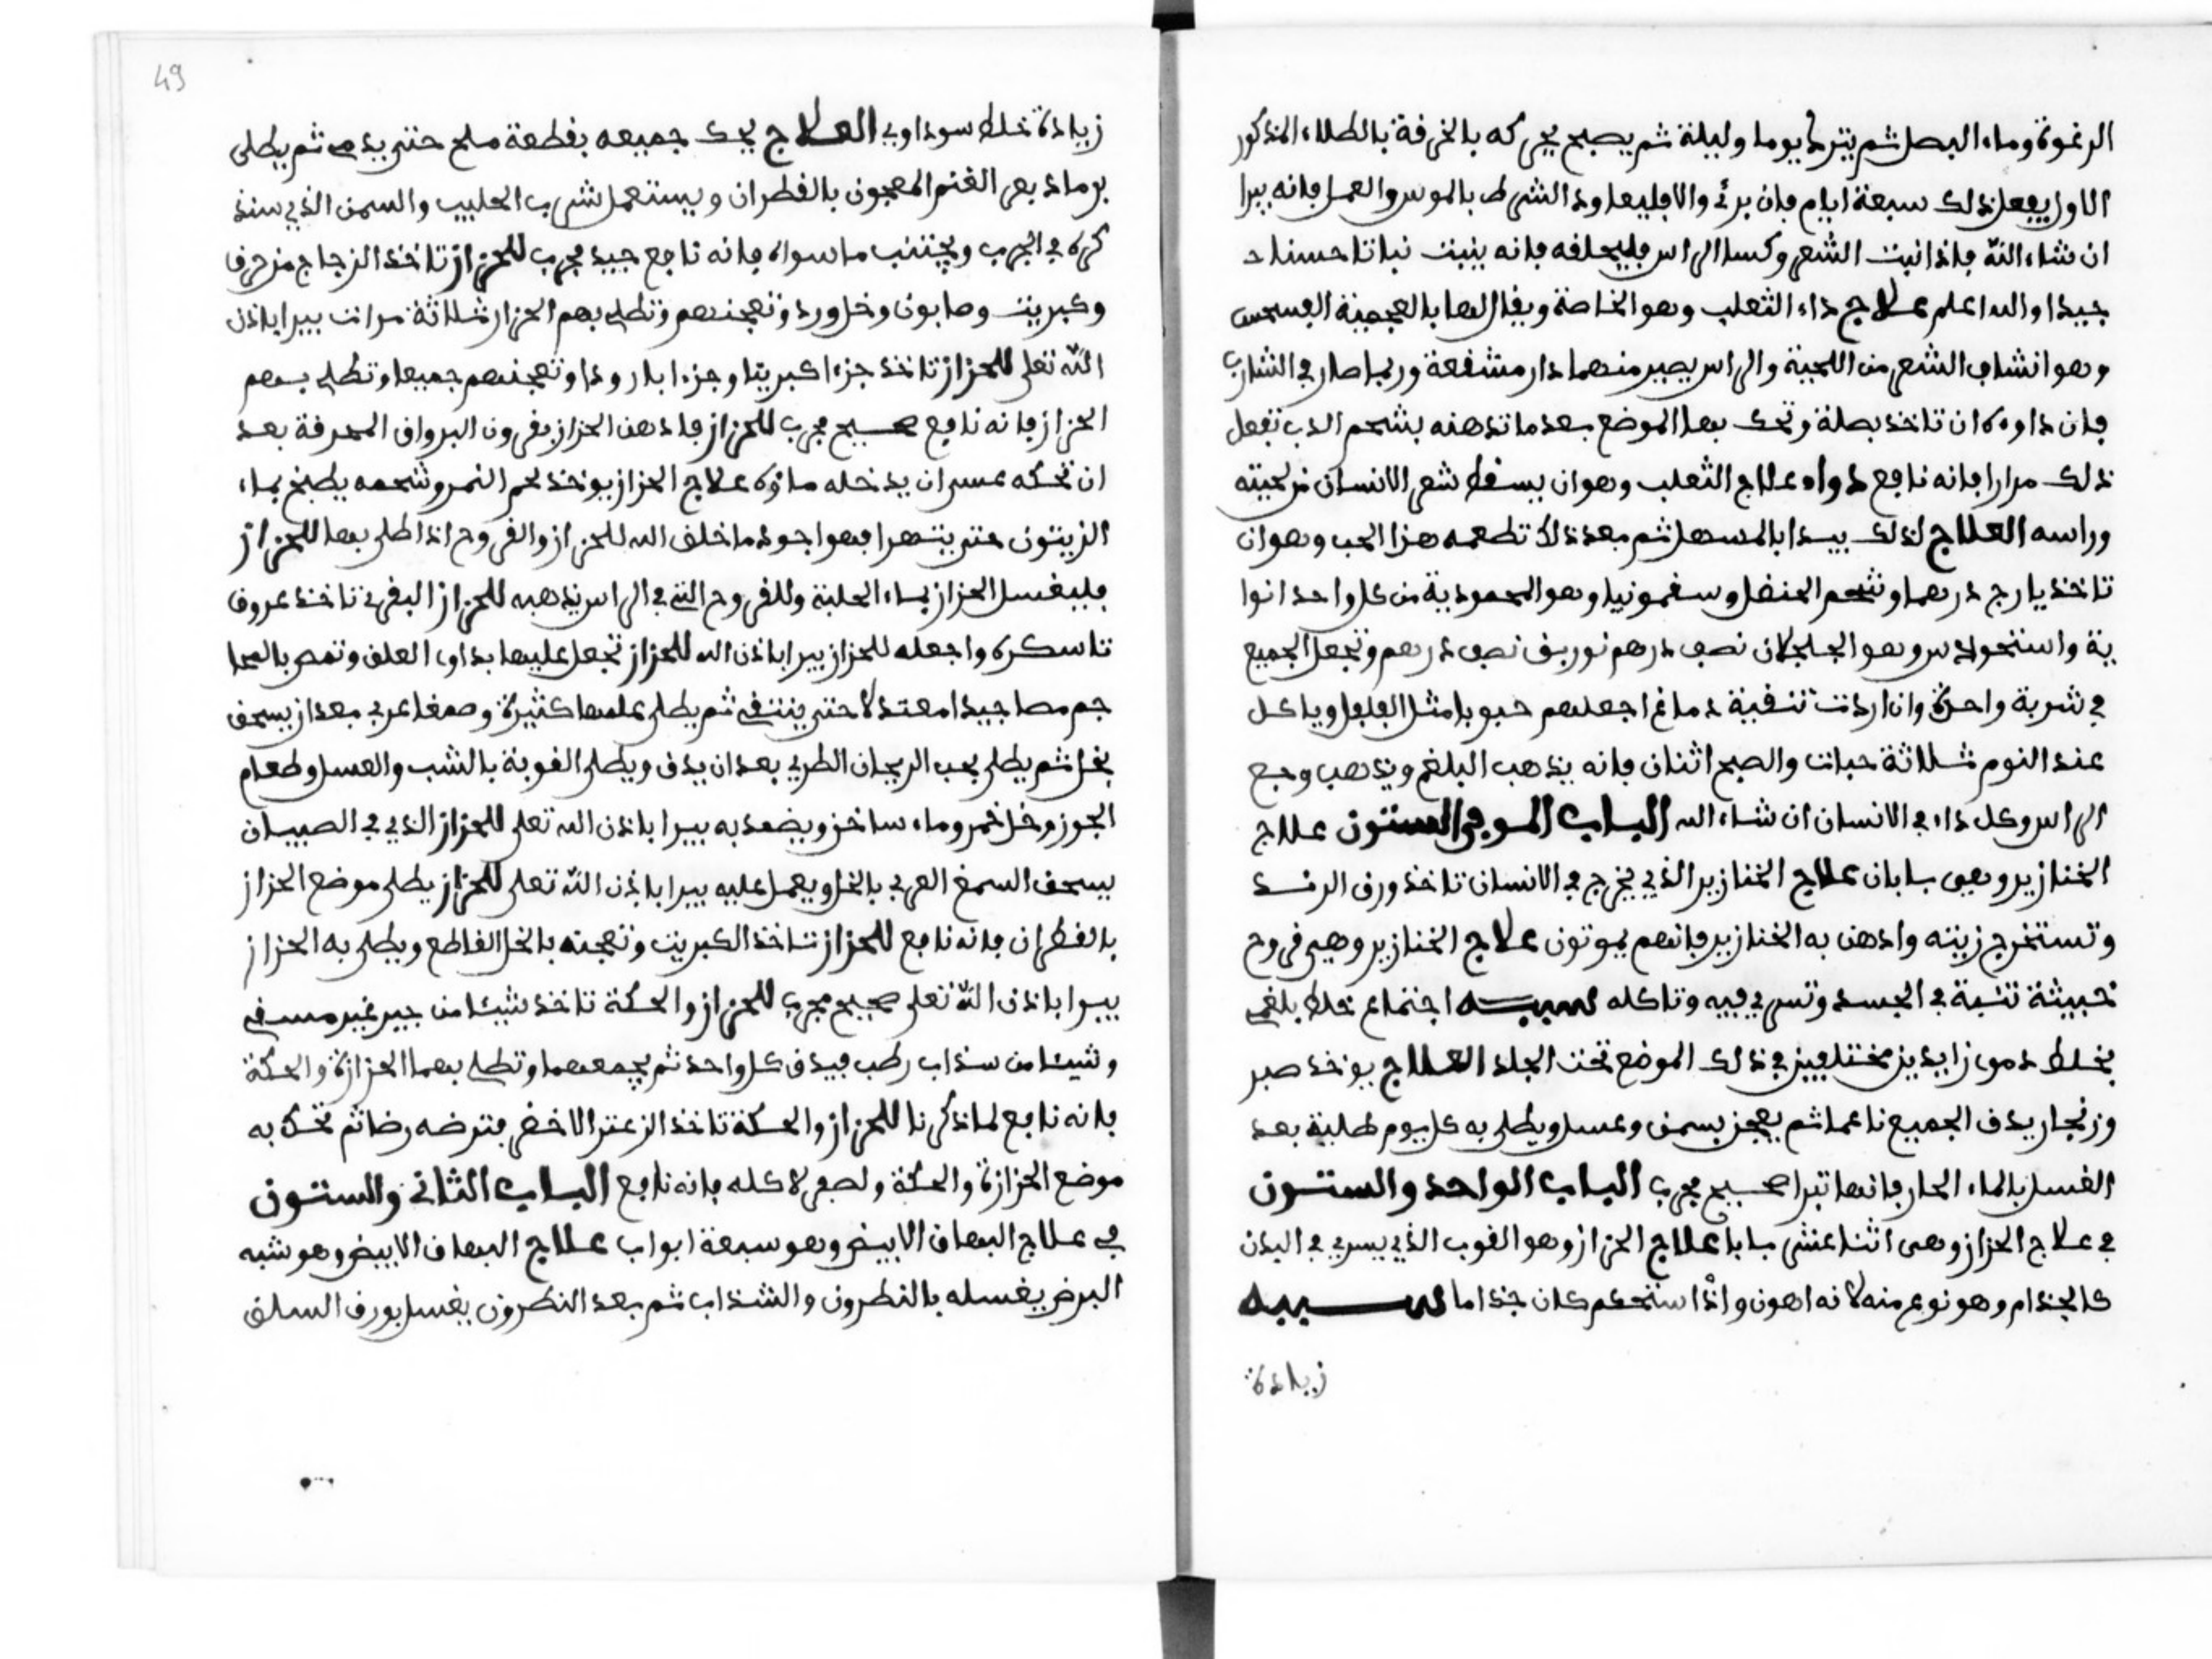 الرغوة وماء البصل ثم يترك يوما وليلة ثم يصبح يحركه بالخرفة بالطلاء المذكور
الاول يفعل ذلك سبعة ايام فان برئ والا فليعاود الشرط بالموس والعمل فانه يبرا
ان شاء الله فاذا نبت الشعر وكسا الراس فليحلفه فانه ينبت نباتا حسنا
جيدا والله اعلم علاج داء الثعلب وهو الخاصة ويقال لها بالعجمية
وهو انتشاف الشعر من اللحية والراس يصير منهما دار مشفعة وربما صار في الشارب
فان داوه ان تاخذ بصلة وتحك بها الموضع بعد ما تدهنه بشحم الدب تفعل
ذلك مرارا فانه نافع دواه علاج الثعلب وهو ان يسفط شعر الانسان من لحيته
وراسه العلاج لذلك يبدا بالمسهل ثم بعد ذلك تطعمه هذا الحب وهو ان
تاخذ يارج درهما وشحم الحنضل وسفمونيا وهو المحمودية من كل واحد انوا
ية واسنخودس وهو الجلجلان نصف درهم نوريف نصف درهم وتجعل الجميع
في شربة واحدة وان اردت تنفية دماغ اجعلهم حبوبا مثل الفلفل وياكل
عند النوم ثلاثة حبات والصبح اثنان فانه يذهب البلغم ويذهب وجع
الراس وكل داء في الانسان ان شاء الله الباب الموفي الستون علاج
الخنازير وهي بابان علاج الخنازير الذي يخرج في الانسان تاخذ ورف الرند
وتستخرج زيته وادهن به الخنازير فانهم يموتون علاج الخنازير وهي فروح
خبيثة تنبت في الجسد وتسري فيه وتاكله سببه اجتماع خلط بلغمي
بخلط دموي زايدين مختلفين في ذلك الموضع تحت الجلد العلاج يوخذ صبر
وزنجار يدف الجميع ناعما ثم يعجن بسمن وعسل ويطلى به كل يوم طلية بعد
الغسل بالماء الحار فانها تبرا صحيح مجرب الباب الواحد والستون
في علاج الحزاز وهي اثنا عشر بابا علاج الحزاز وهو الفوب الذي يسري في البدن
كالجذام وهو نوع منه لانه اهون واذا استحكم كان جذاما سببه
زيادة
49
زيادة خلط سوداوي العلاج يحك جميعه بفطعة ملح حتى يدمى ثم يطلى
برماد بعر الغنم المعجون بالفطران ويستعمل شرب الحليب والسمن الذي سنذ
كره في الجرب ويجتنب ما سواه فانه نافع جيد مجرب للحزاز تاخذ الزجاج
وكبريت وصابون وخل ورد وتعجنهم وتطلي بهم الحزاز ثلاثة مرات يبرا باذن
الله تعلى للحزاز تاخذ جزءا كبريتا وجزءا بارودا وتعجنهم جميعا وتطلي بهم
الحزاز فانه نافع صحيح مجرب للحزاز فادهن الحزاز بفرون البرواف المحرفة بعد
ان تحكه عسى ان يدخله ماؤه علاج الحزاز يوخذ لحم النمر وشحمه يطبخ بماء
الزيتون حتى يتهرا فهو اجود ما خلف الله للحزاز والفروح اذا طلي بها للحزاز
فليغسل الحزاز بماء الحلبة وللفروح التي في الراس يذهبه للحزاز البفري تاخذ عروف
تاسكره واجعله للحزاز يبرا باذن الله للحزاز تجعل عليها بداوى العلف وتمص بالمحا
جم مصا جيدا معتدلا حتى ينتفي ثم يطلى عليها كثيرة وصمغا عربي بعد ان يسحف
بخل ثم يطلى بحب الريحان الطري بعد ان يدف ويطلى الفوبة بالشب والعسل وطعام
الجوز وخل خمر وماء ساخن ويضمد به يبرا باذن الله تعلى للحزاز الذي في الصبيان
يسحف السمغ العربي بالخل ويعمل عليه يبرا باذن الله تعلى للحزاز يطلى موضع الحزاز
بالفطران فانه نافع للحزاز تاخذ الكبريت وتعجنه بالخل الفاطع ويطلى به الحزاز
يبرا باذن الله تعلى صحيح مجرب للحزاز والحكة تاخذ شيئا من جير غير مسفي
وشيئا من سذاب رطب فيدف كل واحد ثم يجمعهما وتطلي بهما الحزازة والحكة
فانه نافع لما ذكرنا للحزاز والحكة تاخذ الزعتر الاخضر فترضه رضا ثم تحك به
موضع الحزازة والحكة ولصف لاكله فانه نافع الباب الثاني والستون
في علاج البهاف الابيض وهو سبعة ابواب علاج البهاف الابيض وهو شبه
البرض يغسله بالنطرون والشذاب ثم بعد النطرون يغسل بورف السلف